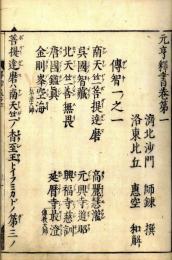 元亨釋書卷第一
濟北沙門 師錬 撰
洛東比丘 惠空 和解
傳智一之一
南天竺菩提達磨
高麗慧灌
呉國智藏
元興寺道昭
北天竺善無畏
興福寺慈訓
唐國鑑眞
延曆寺最澄
金剛峯空海
菩提達磨ハ南天竺ノ香至王トイフミカドノ第三ノ